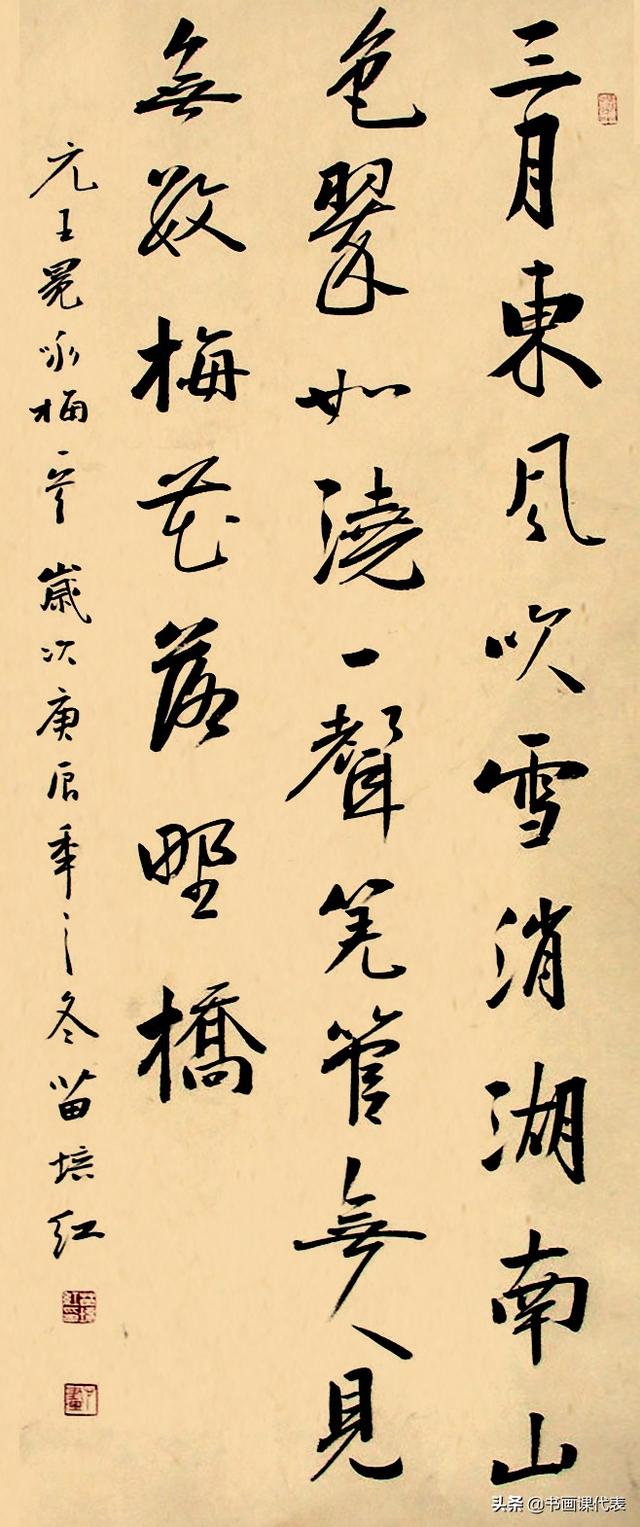 三月東風吹雪消湖南山
色翠如澆一聲羌管無人見
無数梅花落野橋
元王冕咏梅一首歲次庚辰年之冬苗培红
头条@书画课代表